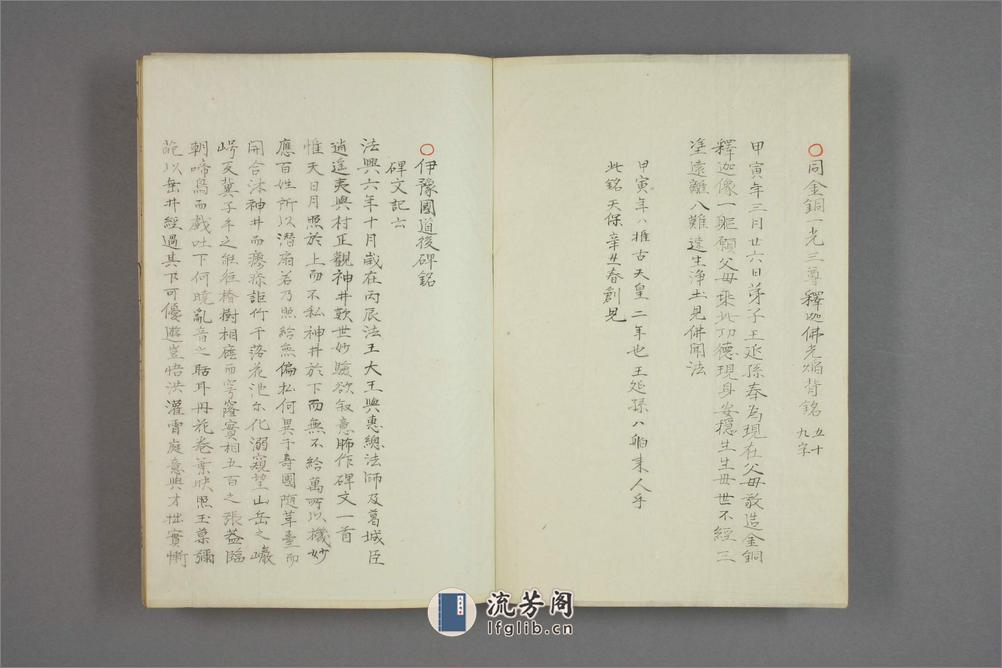 ○同金銅一光三尊釋迦佛光焔背銘 五十九字
甲寅年三月廿六日弟子王延孫奉為現在父母敬造金銅
釋迦像一軀願父母乘此功德現身安穏生生世世不經三
塗遠離八難速生浄土見佛聞法
甲寅年ハ推古天皇二年也王延孫ハ舶来人乎
此銘天保辛丑春創見
○伊豫國道後碑銘
碑文記云
法興六年十月歳在丙辰法王大王與惠緫法師及葛城臣
逍遥夷與村正觀神井歎世妙驗欲叙意聊作碑文一首
惟天日月照於上而不私神井出於下而無不給萬所以機妙
應百姓所以潜扇若乃照給無偏私何異于壽國随華臺而
開合沐神井而瘳疹詎竹于落花池尓化溺窺望山岳之巗
崿反冀子平之能徃椿樹相廕而穹窿實相五百之張盖臨
朝啼鳥而戯吐下何曉亂音之聒耳丹花卷葉映照玉菓彌
葩以垂井經過其下可優遊豈悟洪灌霄庭意與才拙實慚
流芳阁
lfglib.cn